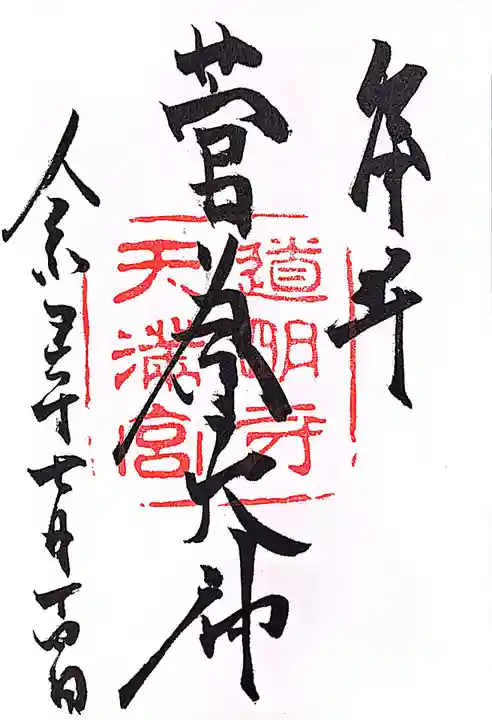 奉拝
菅原大神
道明寺
天満宮
令和年七月十四日